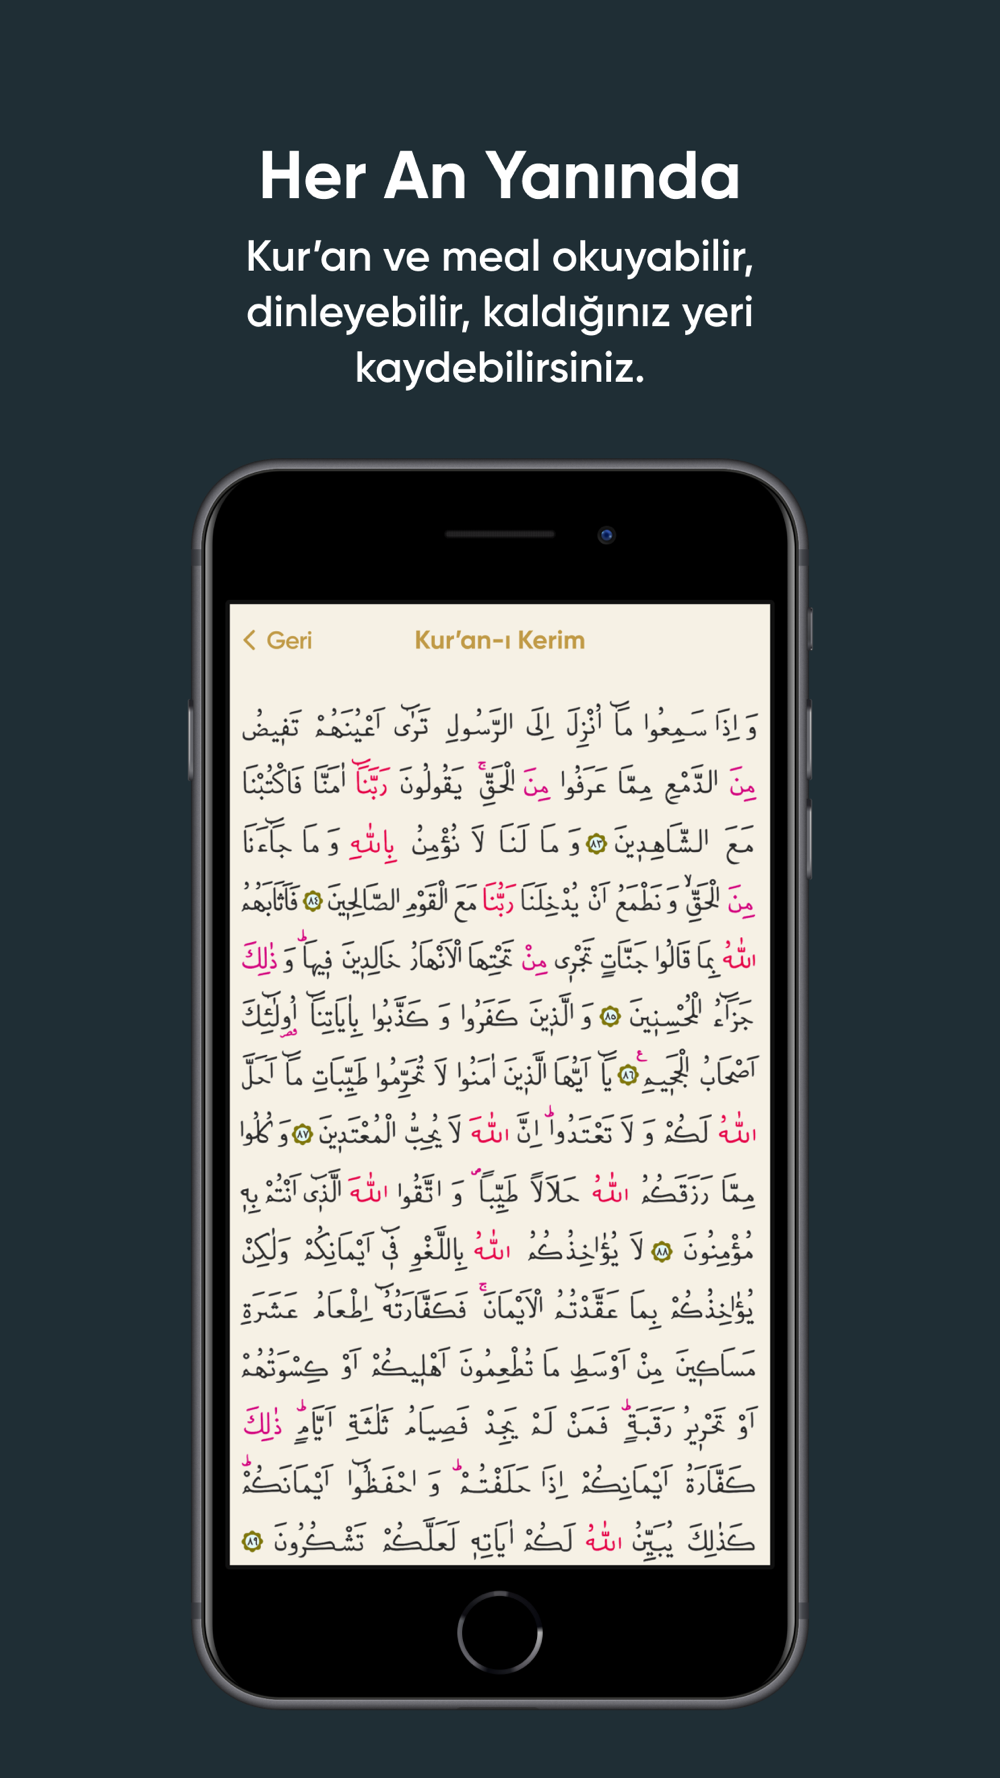 Her An Yanında
Kur’an ve meal okuyabilir,
dinleyebilir, kaldığınız yeri
kaydebilirsiniz.
Geri
Kur’an-ı Kerim
وَاِذَا سَمِعُوا مَٓا اُنْزِلَ اِلَى الرَّسُولِ تَرٰٓى اَعْيُنَهُمْ تَف۪يضُ
مِنَ الدَّمْعِ مِمَّا عَرَفُوا مِنَ الْحَقِّۚ يَقُولُونَ رَبَّنَٓا اٰمَنَّا فَاكْتُبْنَا
مَعَ الشَّاهِد۪ينَ ﴿٨٣﴾ وَمَا لَنَا لَا نُؤْمِنُ بِاللّٰهِ وَمَا جَٓاءَنَا
مِنَ الْحَقِّۙ وَنَطْمَعُ اَنْ يُدْخِلَنَا رَبُّنَا مَعَ الْقَوْمِ الصَّالِح۪ينَ ﴿٨٤﴾ فَاَثَابَهُمُ
اللّٰهُ بِمَا قَالُوا جَنَّاتٍ تَجْر۪ي مِنْ تَحْتِهَا الْاَنْهَارُ خَالِد۪ينَ ف۪يهَاۜ وَذٰلِكَ
جَزَٓاءُ الْمُحْسِن۪ينَ ﴿٨٥﴾ وَالَّذ۪ينَ كَفَرُوا وَكَذَّبُوا بِاٰيَاتِنَٓا اُو۬لٰٓئِكَ
اَصْحَابُ الْجَح۪يمِ ﴿٨٦﴾ يَٓا اَيُّهَا الَّذ۪ينَ اٰمَنُوا لَا تُحَرِّمُوا طَيِّبَاتِ مَٓا اَحَلَّ
اللّٰهُ لَكُمْ وَلَا تَعْتَدُواۜ اِنَّ اللّٰهَ لَا يُحِبُّ الْمُعْتَد۪ينَ ﴿٨٧﴾ وَكُلُوا
مِمَّا رَزَقَكُمُ اللّٰهُ حَلَالاً طَيِّباًۖ وَاتَّقُوا اللّٰهَ الَّذ۪ٓي اَنْتُمْ بِه۪
مُؤْمِنُونَ ﴿٨٨﴾ لَا يُؤٰاخِذُكُمُ اللّٰهُ بِاللَّغْوِ ف۪ٓي اَيْمَانِكُمْ وَلٰكِنْ
يُؤٰاخِذُكُمْ بِمَا عَقَّدْتُمُ الْاَيْمَانَۚ فَكَفَّارَتُهُٓ اِطْعَامُ عَشَرَةِ
مَسَاك۪ينَ مِنْ اَوْسَطِ مَا تُطْعِمُونَ اَهْل۪يكُمْ اَوْ كِسْوَتُهُمْ
اَوْ تَحْر۪يرُ رَقَبَةٍۜ فَمَنْ لَمْ يَجِدْ فَصِيَامُ ثَلٰثَةِ اَيَّامٍۜ ذٰلِكَ
كَفَّارَةُ اَيْمَانِكُمْ اِذَا حَلَفْتُمْۜ وَاحْفَظُٓوا اَيْمَانَكُمْۜ
كَذٰلِكَ يُبَيِّنُ اللّٰهُ لَكُمْ اٰيَاتِه۪ لَعَلَّكُمْ تَشْكُرُونَ ﴿٨٩﴾